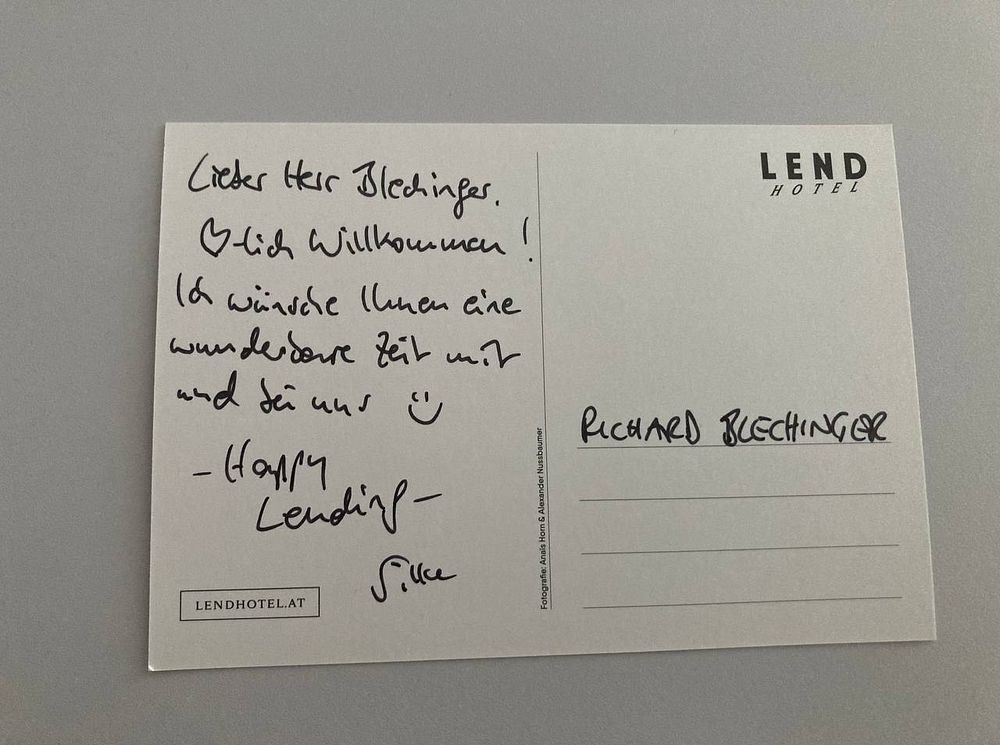 Lieber Herr Blechinger,
♡-lich Willkommen!
Ich wünsche Ihnen eine
wunderbare Zeit mit
und bei uns ☺
- Happy
Lending -
Silke
LENDHOTEL.AT
Fotografie: Anaïs Horn & Alexander Nussbaumer
LEND
HOTEL
RICHARD BLECHINGER